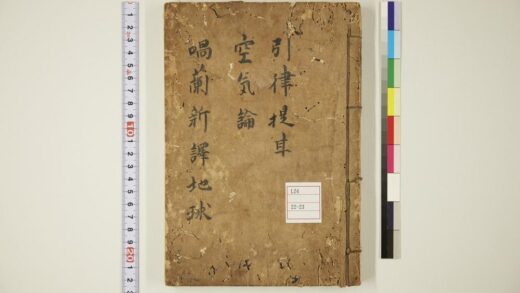 引律提車
空気論
喎蘭新譯地球
124
22-23